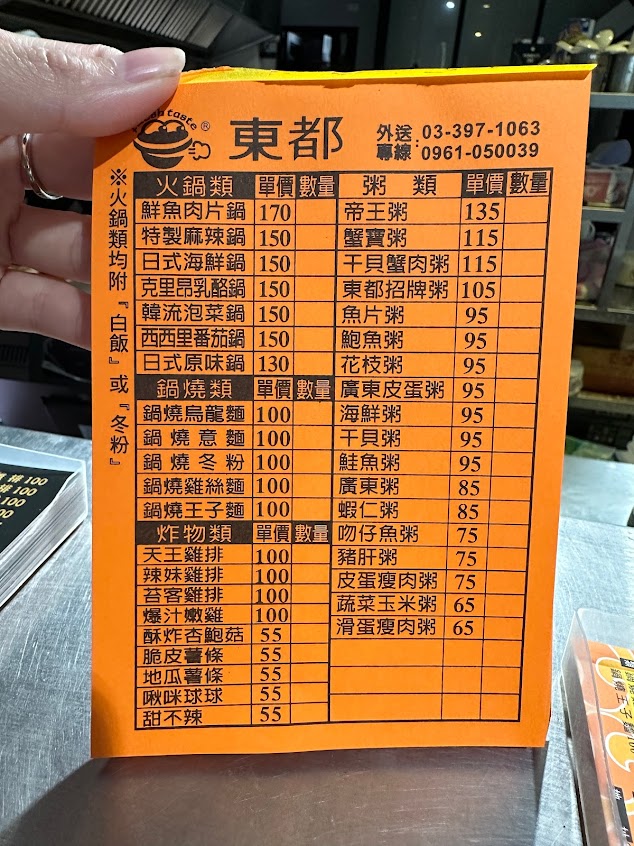 Fresh taste ®
東都
外送專線: 03-397-1063
0961-050039
※火鍋類均附『白飯』或『冬粉』
火鍋類 單價 數量
鮮魚肉片鍋 170
特製麻辣鍋 150
日式海鮮鍋 150
克里昂乳酪鍋 150
韓流泡菜鍋 150
西西里番茄鍋 150
日式原味鍋 130
鍋燒類 單價 數量
鍋燒烏龍麵 100
鍋燒意麵 100
鍋燒冬粉 100
鍋燒雞絲麵 100
鍋燒王子麵 100
炸物類 單價 數量
天王雞排 100
辣妹雞排 100
苔客雞排 100
爆汁嫩雞 100
酥炸杏鮑菇 55
脆皮薯條 55
地瓜薯條 55
啾咪球球 55
甜不辣 55
粥類 單價 數量
帝王粥 135
蟹寶粥 115
干貝蟹肉粥 115
東都招牌粥 105
魚片粥 95
鮑魚粥 95
花枝粥 95
廣東皮蛋粥 95
海鮮粥 95
干貝粥 95
鮭魚粥 95
廣東粥 85
蝦仁粥 85
吻仔魚粥 75
豬肝粥 75
皮蛋瘦肉粥 75
蔬菜玉米粥 65
滑蛋瘦肉粥 65
排 100
排 100
100
100
100